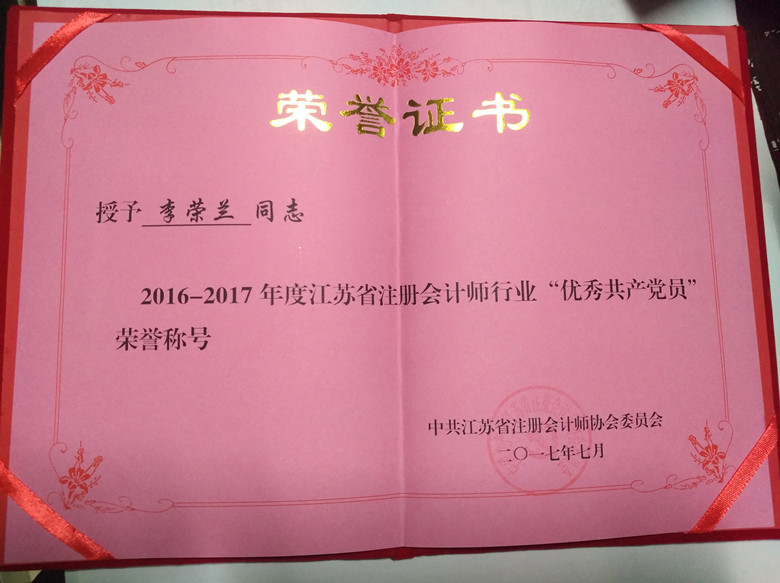 荣誉证书
授予 李荣兰 同志
2016-2017 年度江苏省注册会计师行业“优秀共产党员”
荣誉称号
中共江苏省注册会计师协会委员会
二〇一七年七月